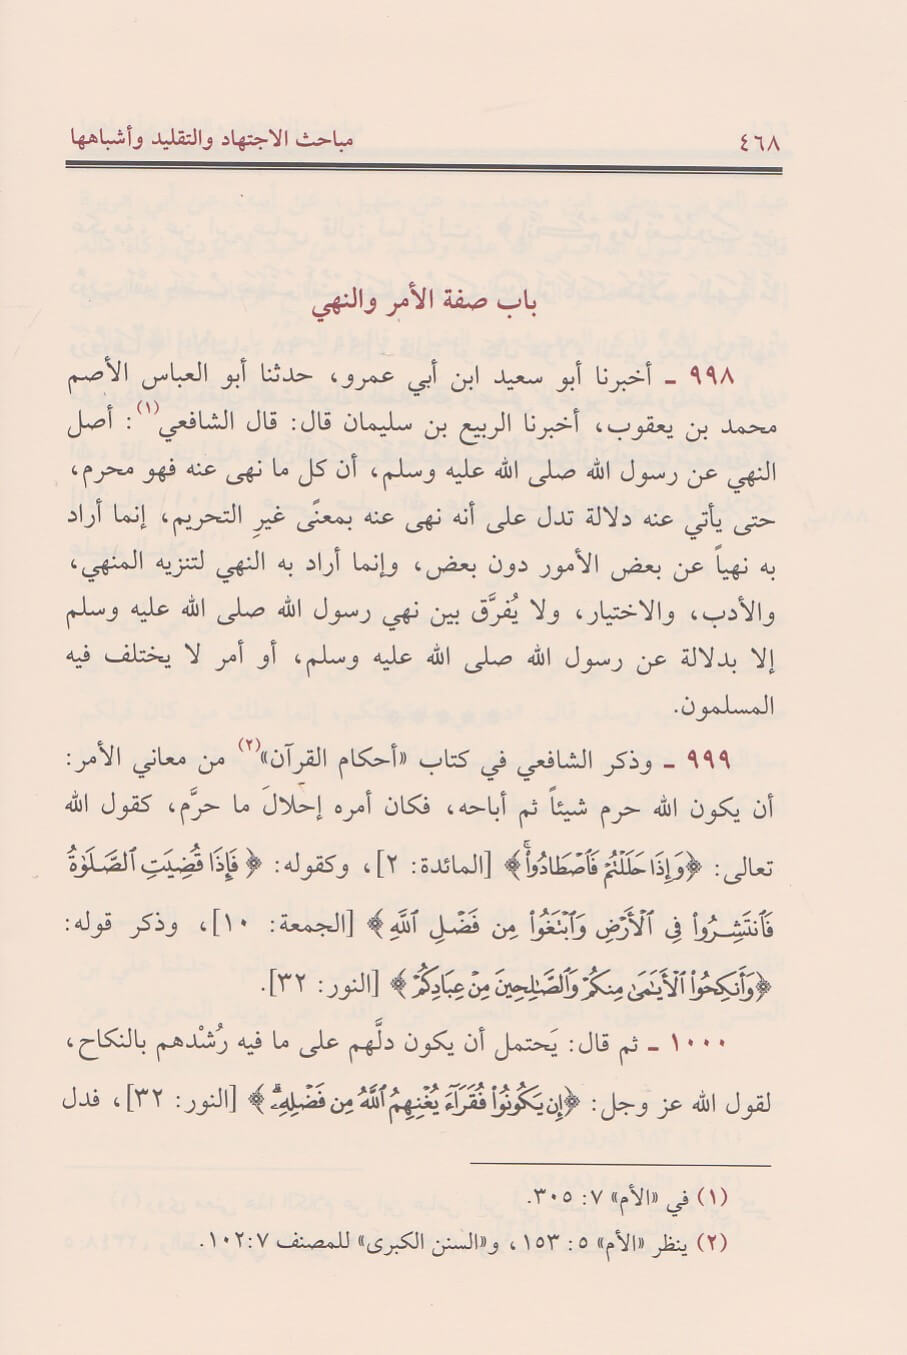 ٤٦٨ مباحث الاجتهاد والتقليد وأشباهها
باب صفة الأمر والنهي
٩٩٨ ـ أخبرنا أبو سعيد ابن أبي عمرو، حدثنا أبو العباس الأصم
محمد بن يعقوب، أخبرنا الربيع بن سليمان قال: قال الشافعي(١): أصل
النهي عن رسول الله صلى الله عليه وسلم، أن كل ما نهى عنه فهو محرم،
حتى يأتي عنه دلالة تدل على أنه نهى عنه بمعنًى غيرِ التحريم، إنما أراد
به نهياً عن بعض الأمور دون بعض، وإنما أراد به النهي لتنزيه المنهي،
والأدب، والاختيار، ولا يُفرَّق بين نهي رسول الله صلى الله عليه وسلم
إلا بدلالة عن رسول الله صلى الله عليه وسلم، أو أمر لا يختلف فيه
المسلمون.
٩٩٩ ـ وذكر الشافعي في كتاب «أحكام القرآن»(٢) من معاني الأمر:
أن يكون الله حرم شيئاً ثم أباحه، فكان أمره إحلالَ ما حرَّم، كقول الله
تعالى: ﴿وَإِذَا حَلَلْتُمْ فَٱصْطَادُوا۟ۚ﴾ [المائدة: ٢]، وكقوله: ﴿فَإِذَا قُضِيَتِ ٱلصَّلَوٰةُ
فَٱنتَشِرُوا۟ فِى ٱلْأَرْضِ وَٱبْتَغُوا۟ مِن فَضْلِ ٱللَّهِ﴾ [الجمعة: ١٠]، وذكر قوله:
﴿وَأَنكِحُوا۟ ٱلْأَيَـٰمَىٰ مِنكُمْ وَٱلصَّـٰلِحِينَ مِنْ عِبَادِكُمْ﴾ [النور: ٣٢].
١٠٠٠ ـ ثم قال: يَحتمل أن يكون دلَّهم على ما فيه رُشْدهم بالنكاح،
لقول الله عز وجل: ﴿إِن يَكُونُوا۟ فُقَرَآءَ يُغْنِهِمُ ٱللَّهُ مِن فَضْلِهِۦۗ﴾ [النور: ٣٢]، فدل
(١) في «الأم» ٧: ٣٠٥.
(٢) ينظر «الأم» ٥: ١٥٣، و«السنن الكبرى» للمصنف ٧:١٠٢.